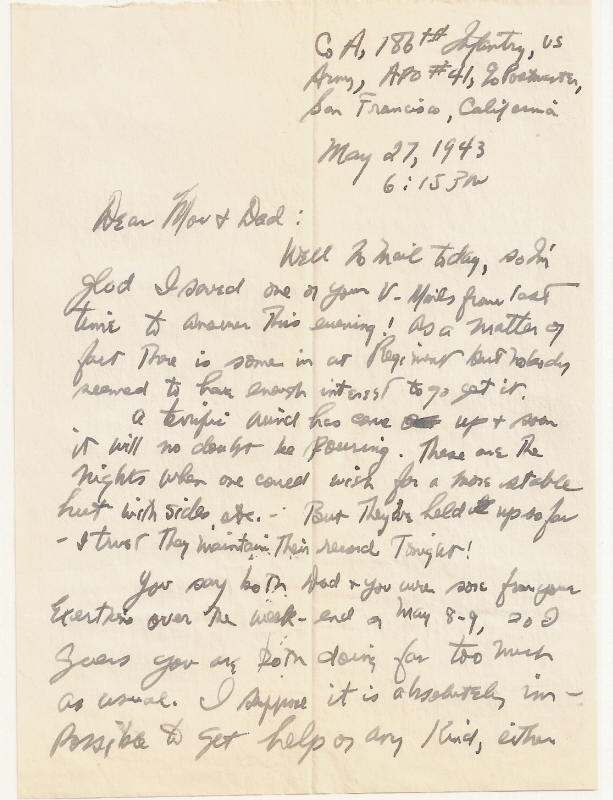 Co A, 186th Infantry, US
Army, APO #41, c/o Postmaster,
San Francisco, California
May 27, 1943
6:15 PM
Dear Mov & Dad:
Well no mail today, so I'm
glad I saved one of your V-Mails from last
time to answer this evening! As a matter of
fact there is some in at Regiment but nobody
seemed to have enough interest to go get it.
A terrific wind has come up & soon
it will no doubt be pouring. These are the
nights when one could wish for a more stable
hut with sides, etc. - But they've held up so far
- I trust they maintain their record tonight!
You say both Dad & you were sore from your
exertions over the week-end of May 8-9, so I
guess you are both doing far too much
as usual. I suppose it is absolutely im-
possible to get help of any kind, either